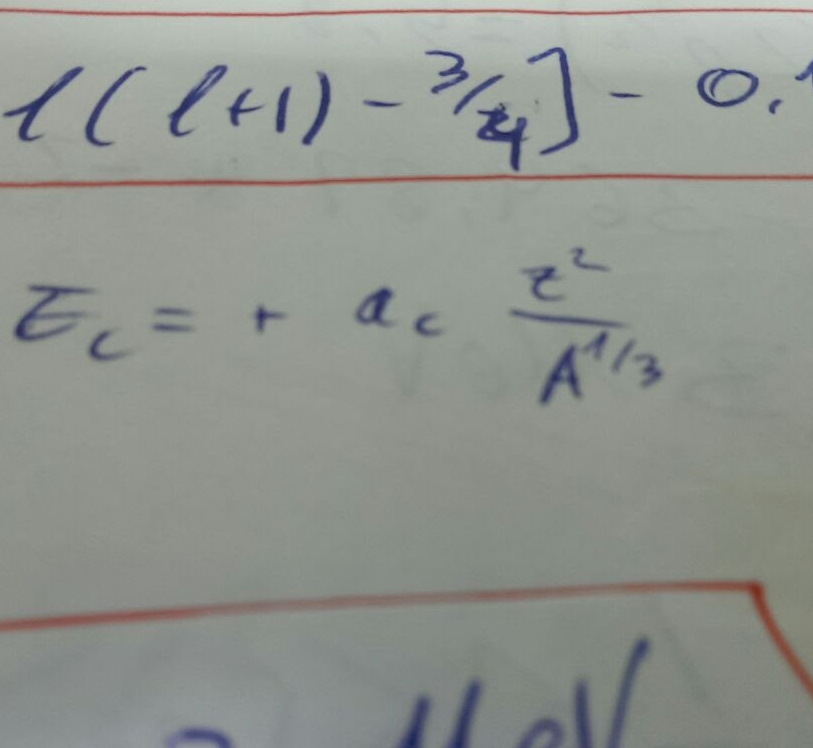 l(l+1) - 3/4] - 0.
E_c = + a_c z²/A^1/3
MeV